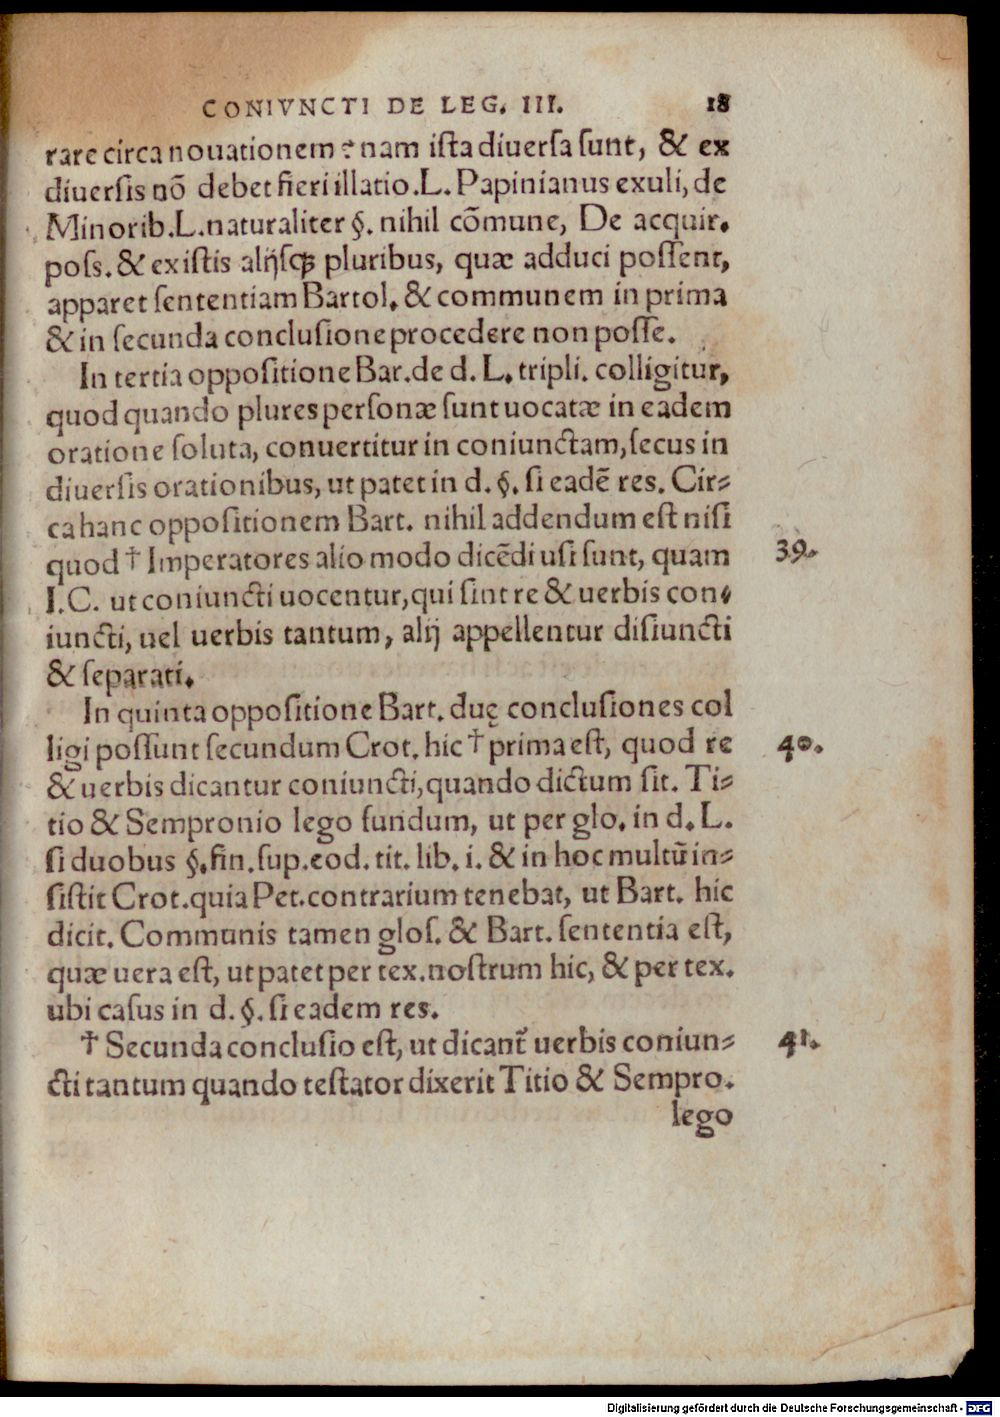 CONIVNCTI DE LEG. III. 18
rare circa nouationem? nam ista diuersa sunt, & ex
diuersis nõ debet fieri illatio. L. Papinianus exuli, de
Minorib. L. naturaliter §. nihil cõmune, De acquir.
poss. & ex istis alijsqꝫ pluribus, quæ adduci possent,
apparet sententiam Bartol. & communem in prima
& in secunda conclusione procedere non posse.
In tertia oppositione Bar. de d. L. tripli. colligitur,
quod quando plures personæ sunt uocatæ in eadem
oratione soluta, conuertitur in coniunctam, secus in
diuersis orationibus, ut patet in d. §. si eadẽ res. Cir-
ca hanc oppositionem Bart. nihil addendum est nisi
quod † Imperatores alio modo dicẽdi usi sunt, quam 39.
I.C. ut coniuncti uocentur, qui sint re & uerbis con-
iuncti, uel uerbis tantum, alij appellentur disiuncti
& separati.
In quinta oppositione Bart. duę conclusiones col
ligi possunt secundum Crot. hic † prima est, quod re 40.
& uerbis dicantur coniuncti, quando dictum sit. Ti-
tio & Sempronio lego fundum, ut per glo. in d. L.
si duobus §. fin. sup. eod. tit. lib. i. & in hoc multũ in-
sistit Crot. quia Pet. contrarium tenebat, ut Bart. hic
dicit. Communis tamen glos. & Bart. sententia est,
quæ uera est, ut patet per tex. nostrum hic, & per tex.
ubi casus in d. §. si eadem res.
† Secunda conclusio est, ut dicant̃ uerbis coniun- 41.
cti tantum quando testator dixerit Titio & Sempro.
lego
Digitalisierung gefördert durch die Deutsche Forschungsgemeinschaft - DFG